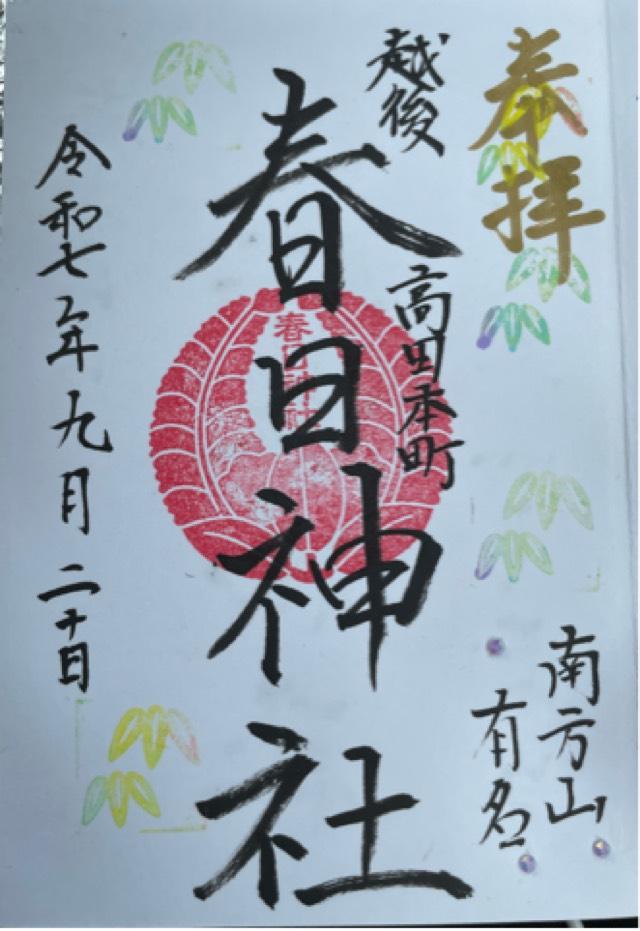 奉拝
越後
高田本町
春日神社
春日神社
南方山
有名
令和七年九月二十日